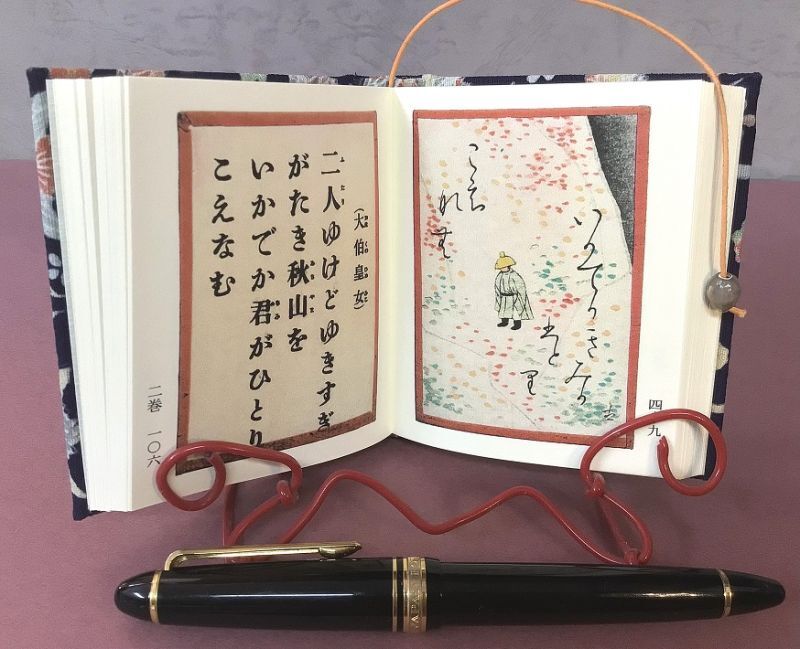 いかてかきみか
ひとり
四九
(大伯皇女)
二人ゆけどゆきすぎ
がたき秋山を
いかでか君がひとり
こえなむ
二巻 一〇六